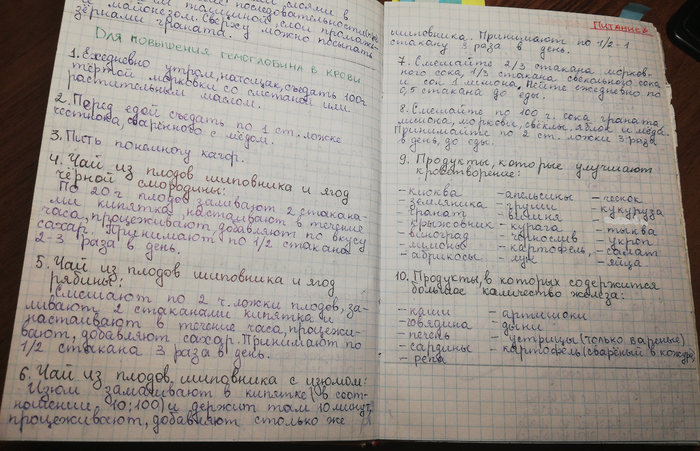 слоями в
последовательности (кро-
ме) толщиной, слои промаже-
те майонезом. Сверху можно посыпать
зернами граната.
Для повышения гемоглобина в крови
1. Ежедневно утром, натощак, съедать 100г
тёртой моркови со сметаной или
растительным маслом.
2. Перед едой съедать по 1 ст. ложке
чеснока, сваренного с мёдом.
3. Пить понемногу кагор.
4. Чай из плодов шиповника и ягод
чёрной смородины:
По 20 г плодов заливают 2 стакана-
ми кипятка, настаивают в течение
часа, процеживают добавляют по вкусу
сахар. Принимают по 1/2 стакана
2-3 раза в день.
5. Чай из плодов шиповника и ягод
рябины:
Смешают по 2 ч. ложки плодов, за-
ливают 2 стаканами кипятка и
настаивают в течение часа, процежи-
вают, добавляют сахар. Принимают по
1/2 стакана 3 раза в день.
6. Чай из плодов, шиповника с изюмом:
Изюм замачивают в кипятке (в соот-
ношении 10:100) и держит там 10 минут,
процеживают, добавляют столько же
Питание
шиповника. Принимают по 1/2-1
стакану 3 раза в день.
7. Смешайте 2/3 стакана морков-
ного сока, 1/3 стакана свекольного сока
и сок 1 лимона. Пейте ежедневно по
0,5 стакана до еды.
8. Смешайте по 100 г. сока граната,
лимона, моркови, свёклы, яблок и мёда.
Принимайте по 2 ст. ложки 3 раза
в день, до еды.
9. Продукты, которые улучшают
кроветворение:
- клюква - апельсины - чеснок
- земляника - груши - кукуруза
- гранат - вишня - тыква
- крыжовник - курага - укроп
- виноград - чернослив - салат
- лимоны - картофель, - яйца
- абрикосы - лук
10. Продукты, в которых содержится
большое количество железа:
- каши - артишоки
- говядина - дыни
- печень - устрицы (только вареные)
- сардины - картофель (сваренный в кожуре)
- репа